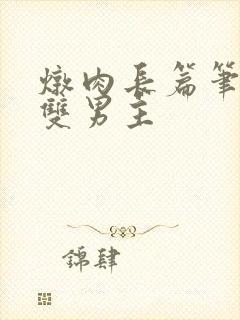 燉肉長篇筆
雙男主
錦肆